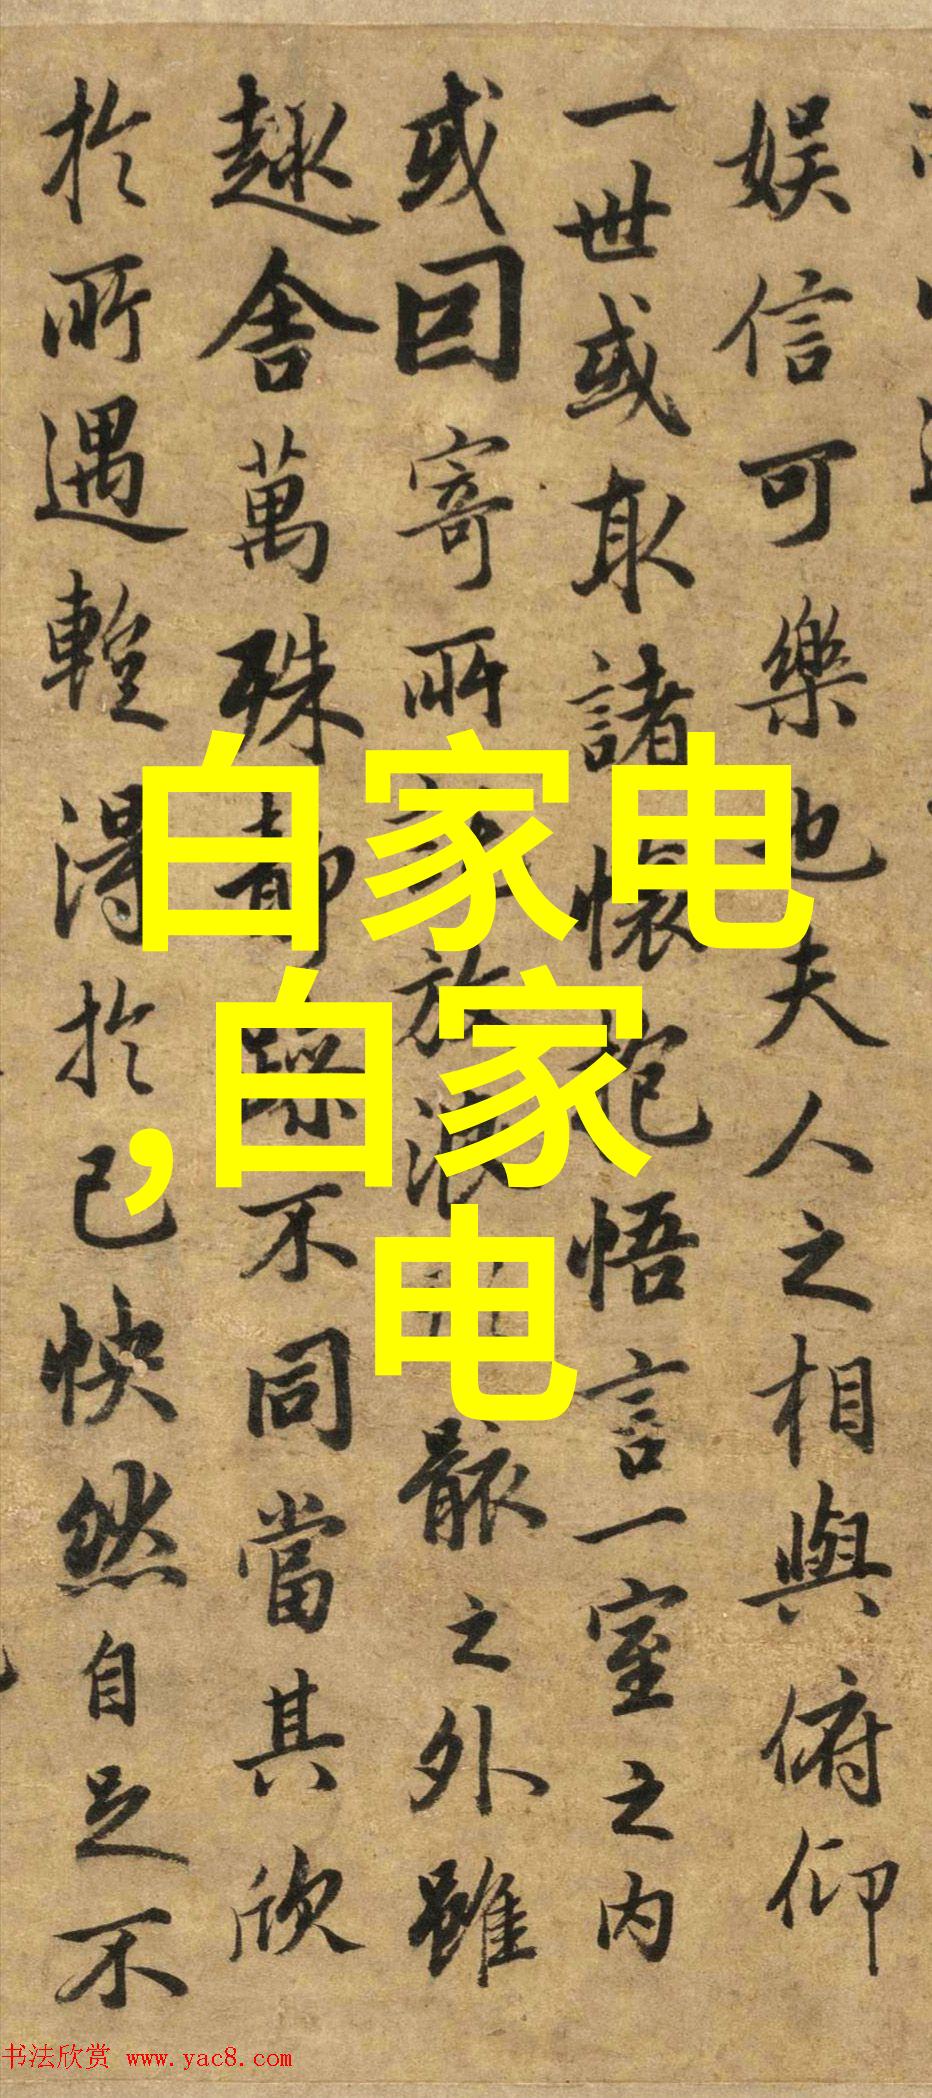 娛信可樂也夫人之相與俯仰
一世或取諸懷抱悟言一室之内
或因寄所託放浪形骸之外雖
趣舍萬殊静躁不同當其欣
於所遇輙得於己快然自足不
白家电
,自家
电
书法欣赏 www.yac8.com